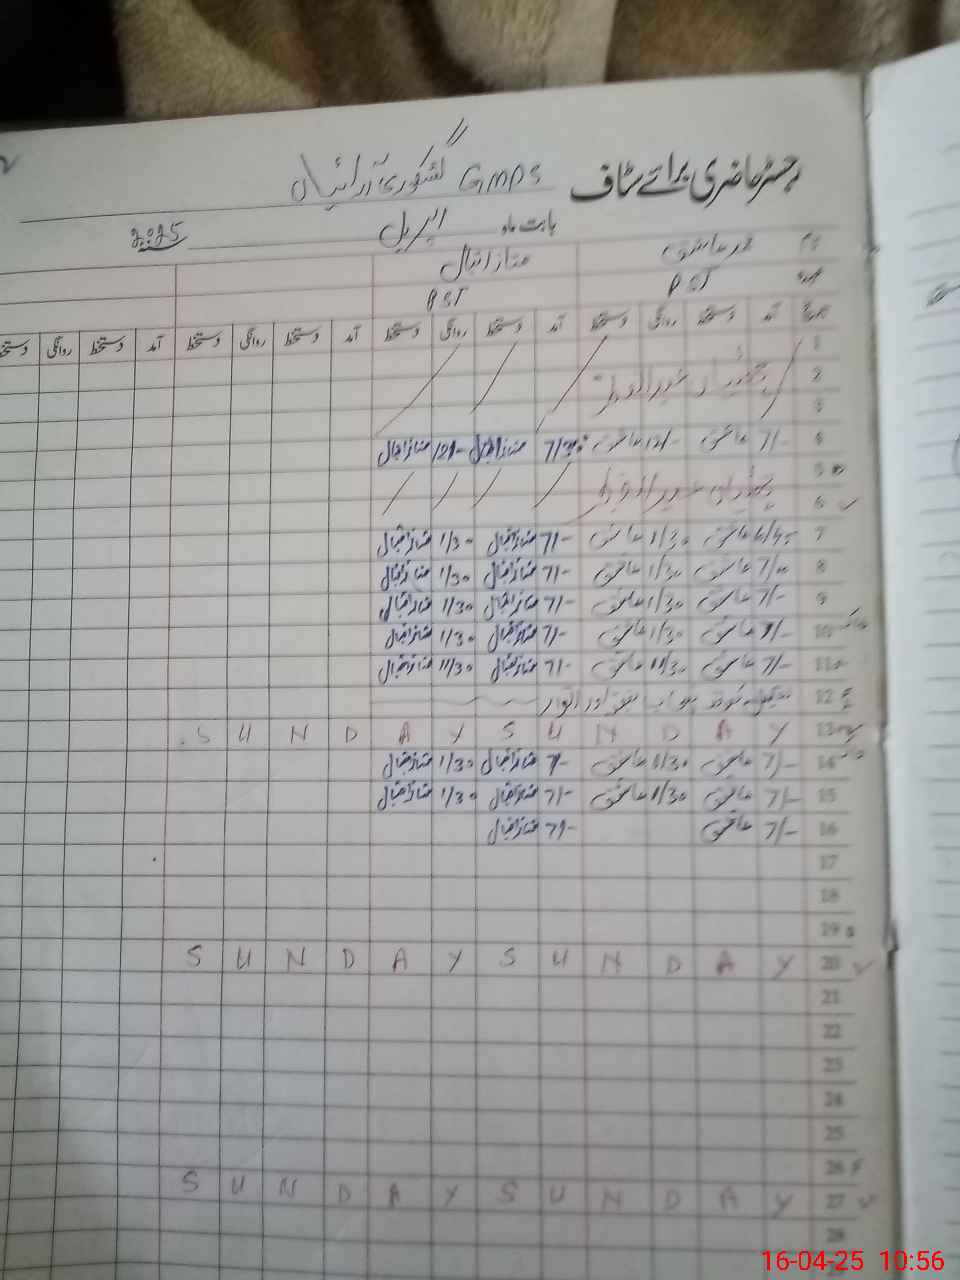 رجسٹر حاضری برائے سٹاف GMPS
بابت ماہ اپریل 2025
نام محمد عاشق ممتاز اقبال
عہدہ PST PST
تاریخ آمد دستخط روانگی دستخط آمد دستخط روانگی دستخط آمد دستخط روانگی دستخط آمد دستخط روانگی دستخط
1
2
3
4 7/- عاشق 12/- عاشق 7/30 ممتاز اقبال 12/- ممتاز اقبال
5
6
7 6/45 عاشق 1/30 عاشق 7/- ممتاز اقبال 1/30 ممتاز اقبال
8 7/00 عاشق 1/30 عاشق 7/- ممتاز اقبال 1/30 ممتاز اقبال
9 7/- عاشق 1/30 عاشق 7/- ممتاز اقبال 1/30 ممتاز اقبال
10 7/- عاشق 1/30 عاشق 7/- ممتاز اقبال 1/30 ممتاز اقبال
11 7/- عاشق 11/30 عاشق 7/- ممتاز اقبال 11/30 ممتاز اقبال
12
13 S U N D A Y S U N D A Y
14 7/- عاشق 1/30 عاشق 7/- ممتاز اقبال 1/30 ممتاز اقبال
15 7/- عاشق 1/30 عاشق 7/- ممتاز اقبال 1/30 ممتاز اقبال
16 7/- عاشق 7/- ممتاز اقبال
17
18
19
20 S U N D A Y S U N D A Y
21
22
23
24
25
26
27 S U N D A Y S U N D A Y
28
16-04-25 10:56